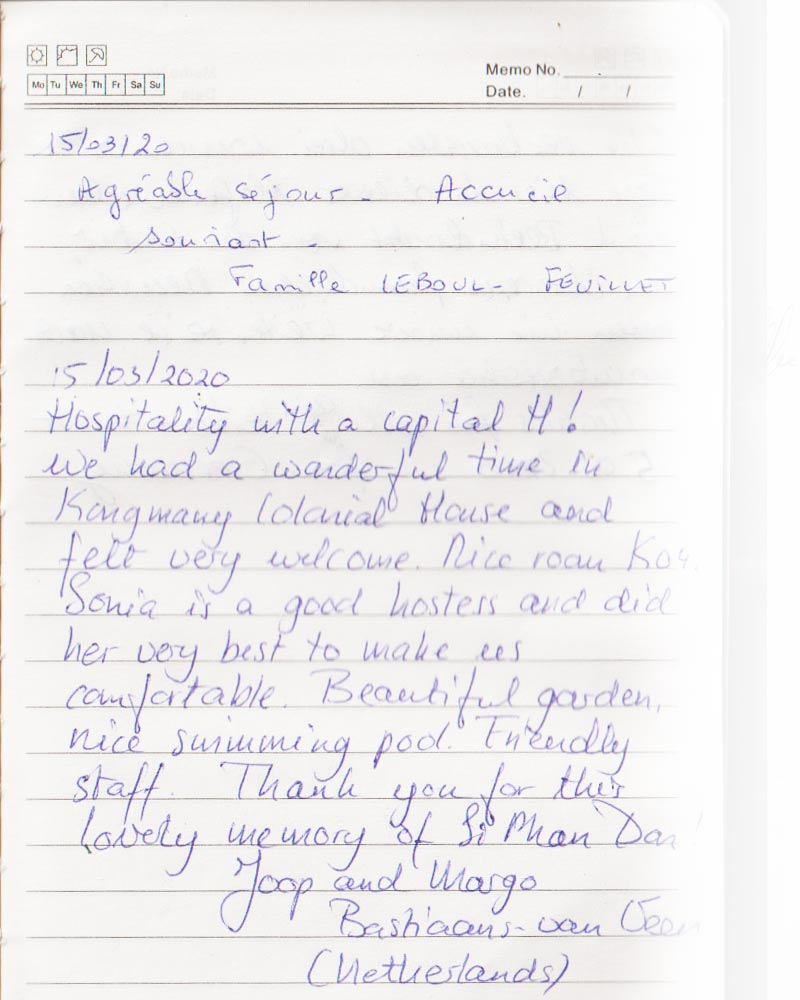 Mo Tu We Th Fr Sa Su
Memo No.
Date. / /
15/03/20
Agréable séjour - Accueil
souriant -
Famille LEBOUL - FEUILLET
15/03/2020
Hospitality with a capital H!
We had a wonderful time in
Kongmany Colonial House and
felt very welcome. Nice room
Sonia is a good hostess and did
her very best to make us
comfortable. Beautiful garden,
nice swimming pool. Friendly
staff. Thank you for this
lovely memory of Si Phan Don!
Joop and Margo
Bastiaans-van
(Netherlands)